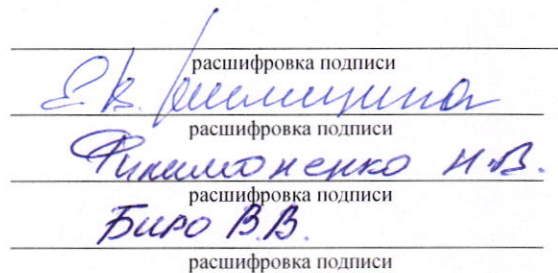 расшифровка подписи
Е.В.
расшифровка подписи
Филимоненко Н.В.
расшифровка подписи
Биро В.В.
расшифровка подписи